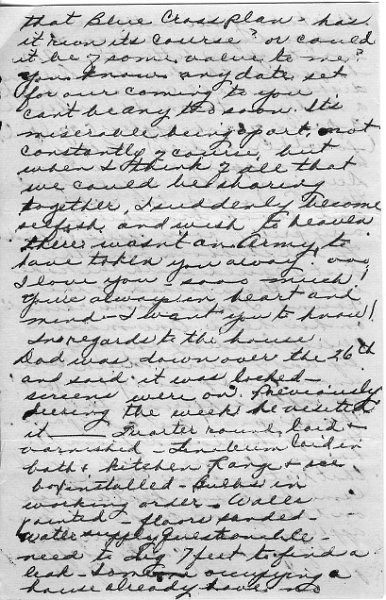 that Blue Cross plan - has
it run its course? or could
it be of some value to me?
You know any date set
for our coming to you
can't be any too soon. It's
miserable being apart, not
constantly of course, but
when I think of all that
we could be sharing
together, I suddenly become
selfish and wish to heaven
there wasn't an Army to
have taken you away!
I love you - sooo much!
You're always in heart and
mind - I want you to know!
In regards to the house
Dad was down over the 26th
and said it was locked -
screens were on. Previously
during the week he visited
it — Quarter round, laid &
varnished - Linoleum laid in
bath & kitchen Range & ice
box installed - Bulbs in
working order - Walls
painted - floors sanded -
Water supply questionable -
need to dig 7 feet to find a
leak - occupying a
house already have no